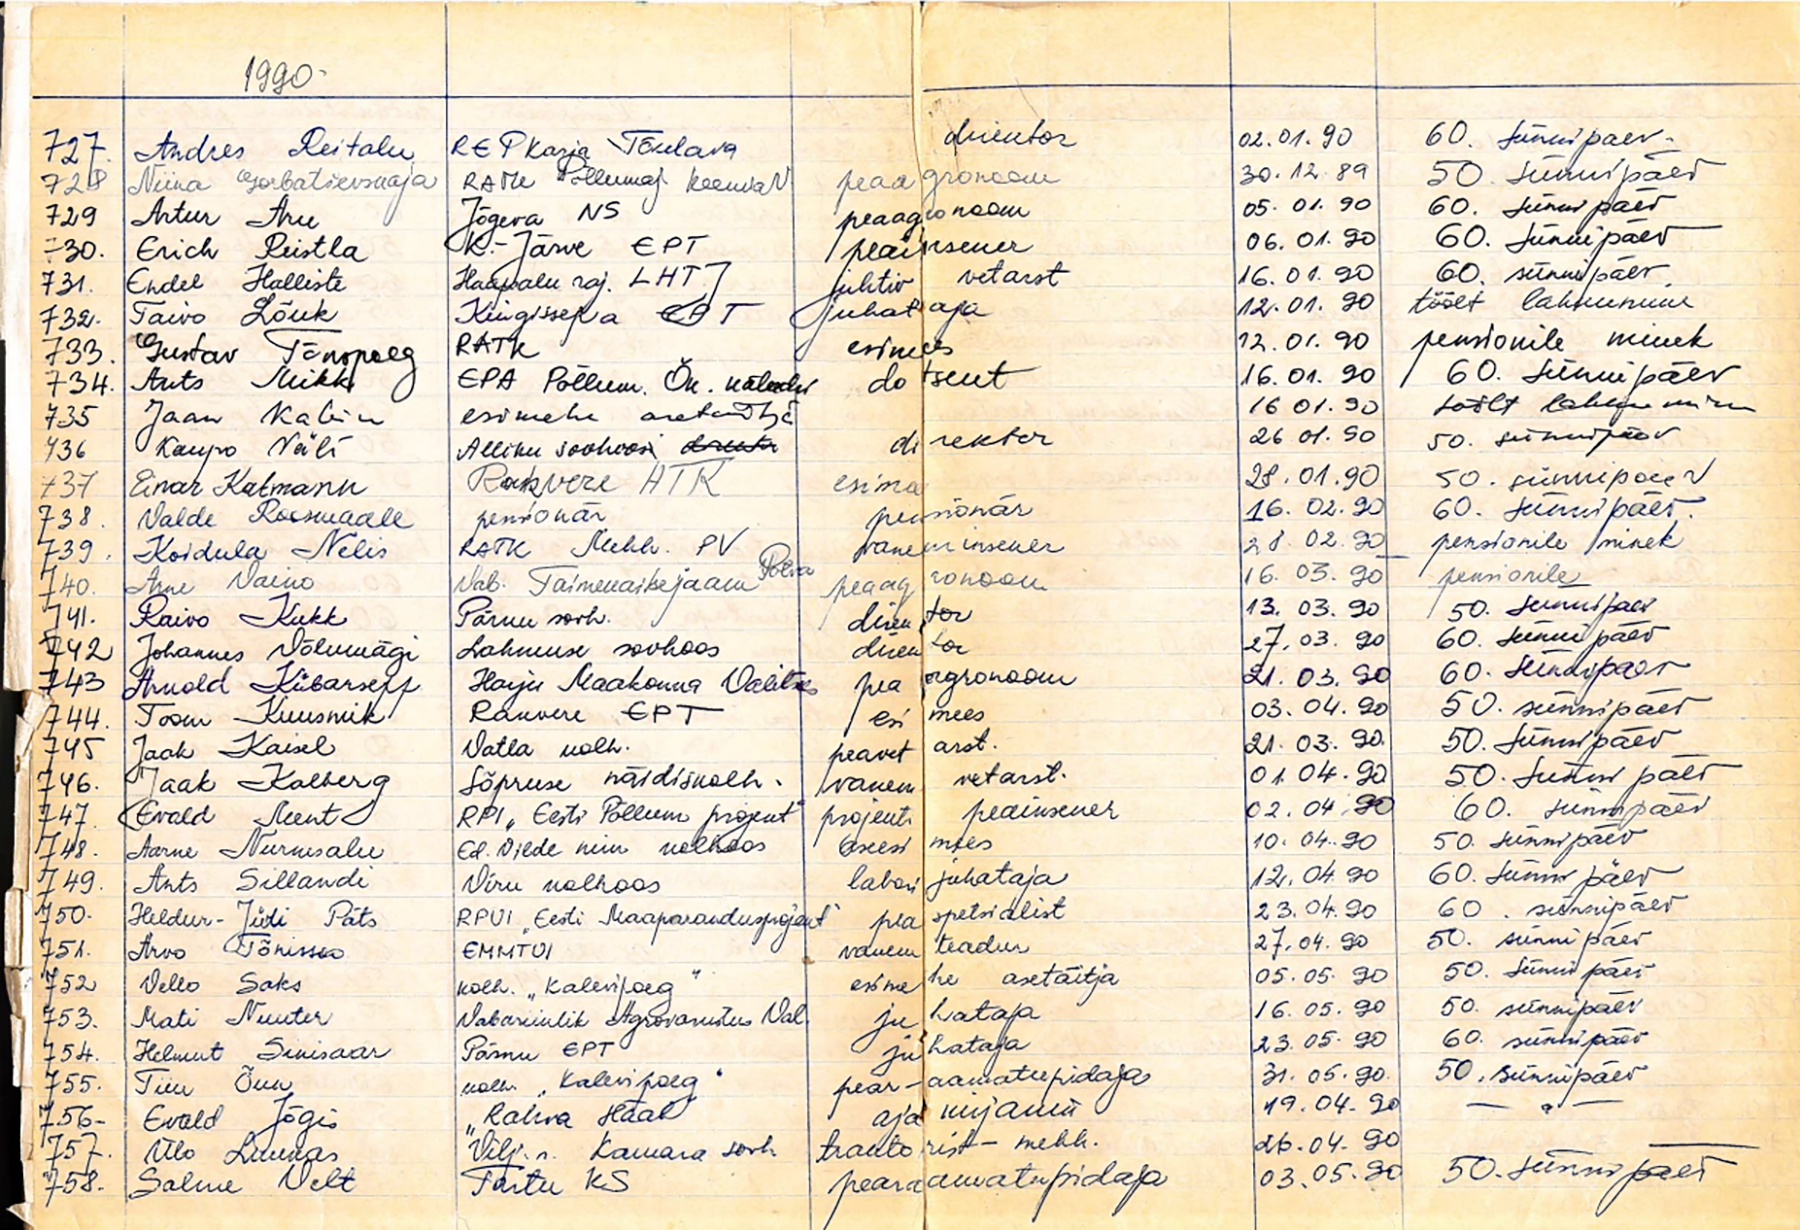 1990.
727. Andres Reitalu REPKarja Tõulava direktor 02.01.90 60. sünnipäev.
728 Niina RATK Põllumaj. peaagronoom 30.12.89 50. sünnipäev
729 Artur Aru Jõgeva NS peaagronoom 05.01.90 60. sünnipäev
730. Erich Ristla K.-Järve EPT peainsener 06.01.90 60. sünnipäev
731. Endel Halliste Haapsalu raj. LHTJ juhtiv vetarst 16.01.90 60. sünnipäev
732. Taivo Lõuk Kingissepa EPT juhataja 12.01.90 töölt lahkumine
733. Gustav Tõnspoeg RATK esimees 12.01.90 pensionile minek
734. Ants Mikk EPA Põllum. Ök. dotsent 16.01.90 60. sünnipäev
735 Jaan Kabin esimehe asetäitja 16 01.90 töölt lahkumine
736 Kaupo Nälk Alliku sovhoosi direktor 26 01.90 50. sünnipäev
737 Einar Katmann Rakvere ATK esime 28.01.90 50. sünnipäev
738. Valde Roosmaale pensionär pensionär 16.02.90 60. sünnipäev.
739. Koidula Nelis RATK Mehh. PV vaneminsener 28.02.90 pensionile minek
740. Arne Vaino Vab. Taimekaitsejaam Põlva peaagronoom 16.03.90 pensionile
741. Raivo Kukk Pärnu sovh. direktor 13.03.90 50. sünnipäev
742 Johannes Võlumägi Lahmuse sovhoos direktor 27.03.90 60. sünnipäev
743 Arnold Kübarsepp Harju Maakonna Valitsus peaagronoom 21.03.90 60. sünnipäev
744. Toom Kuusmik Rakvere EPT esimees 03.04.90 50. sünnipäev
745 Jaak Kaisel Vatla kolh. peavetarst. 21.03.90. 50. sünnipäev
746. Jaak Kalberg Sõpruse näidiskolh. vanemvetarst. 01.04.90 50. sünnipäev
747. Evald Ment RPI „Eesti Põllum projekt" projekti peainsener 02.04.90 60. sünnipäev
748. Aarne Nurmsalu Ed. Vilde nim kolhoos aseesimees 10.04.90 50. sünnipäev
749. Ants Sillandi Viru kolhoos labori juhataja 12.04.90 60. sünnipäev
750. Heldur-Jüdi Päts RPUI „Eesti Maaparandusprojekt" peaspetsialist 23.04.90 60. sünnipäev
751. Arvo Tõnisson EMMTUI vanemteadur 27.04.90 50. sünnipäev
752 Vello Saks kolh. „Kalevipoeg" esimehe asetäitja 05.05.90 50. sünnipäev
753. Mati Nuuter Vabariiklik Agrovarustus Val. juhataja 16.05.90 50. sünnipäev
754. Helmut Sinisaar Pärnu EPT juhataja 23.05.90 60. sünnipäev
755. Tiiu Õun kolh. „Kalevipoeg" pear-aamatupidaja 31.05.90. 50. sünnipäev
756- Evald Jõgis „Rahva Hääl" ajakirjanik 19.04.90 — „ —
757. Ülo Linnas Vilj. r. Kamara sovh traktorist-mehh. 26.04.90
758. Salme Velt Tartu KS pearaamatupidaja 03.05.90 50. sünnipäev